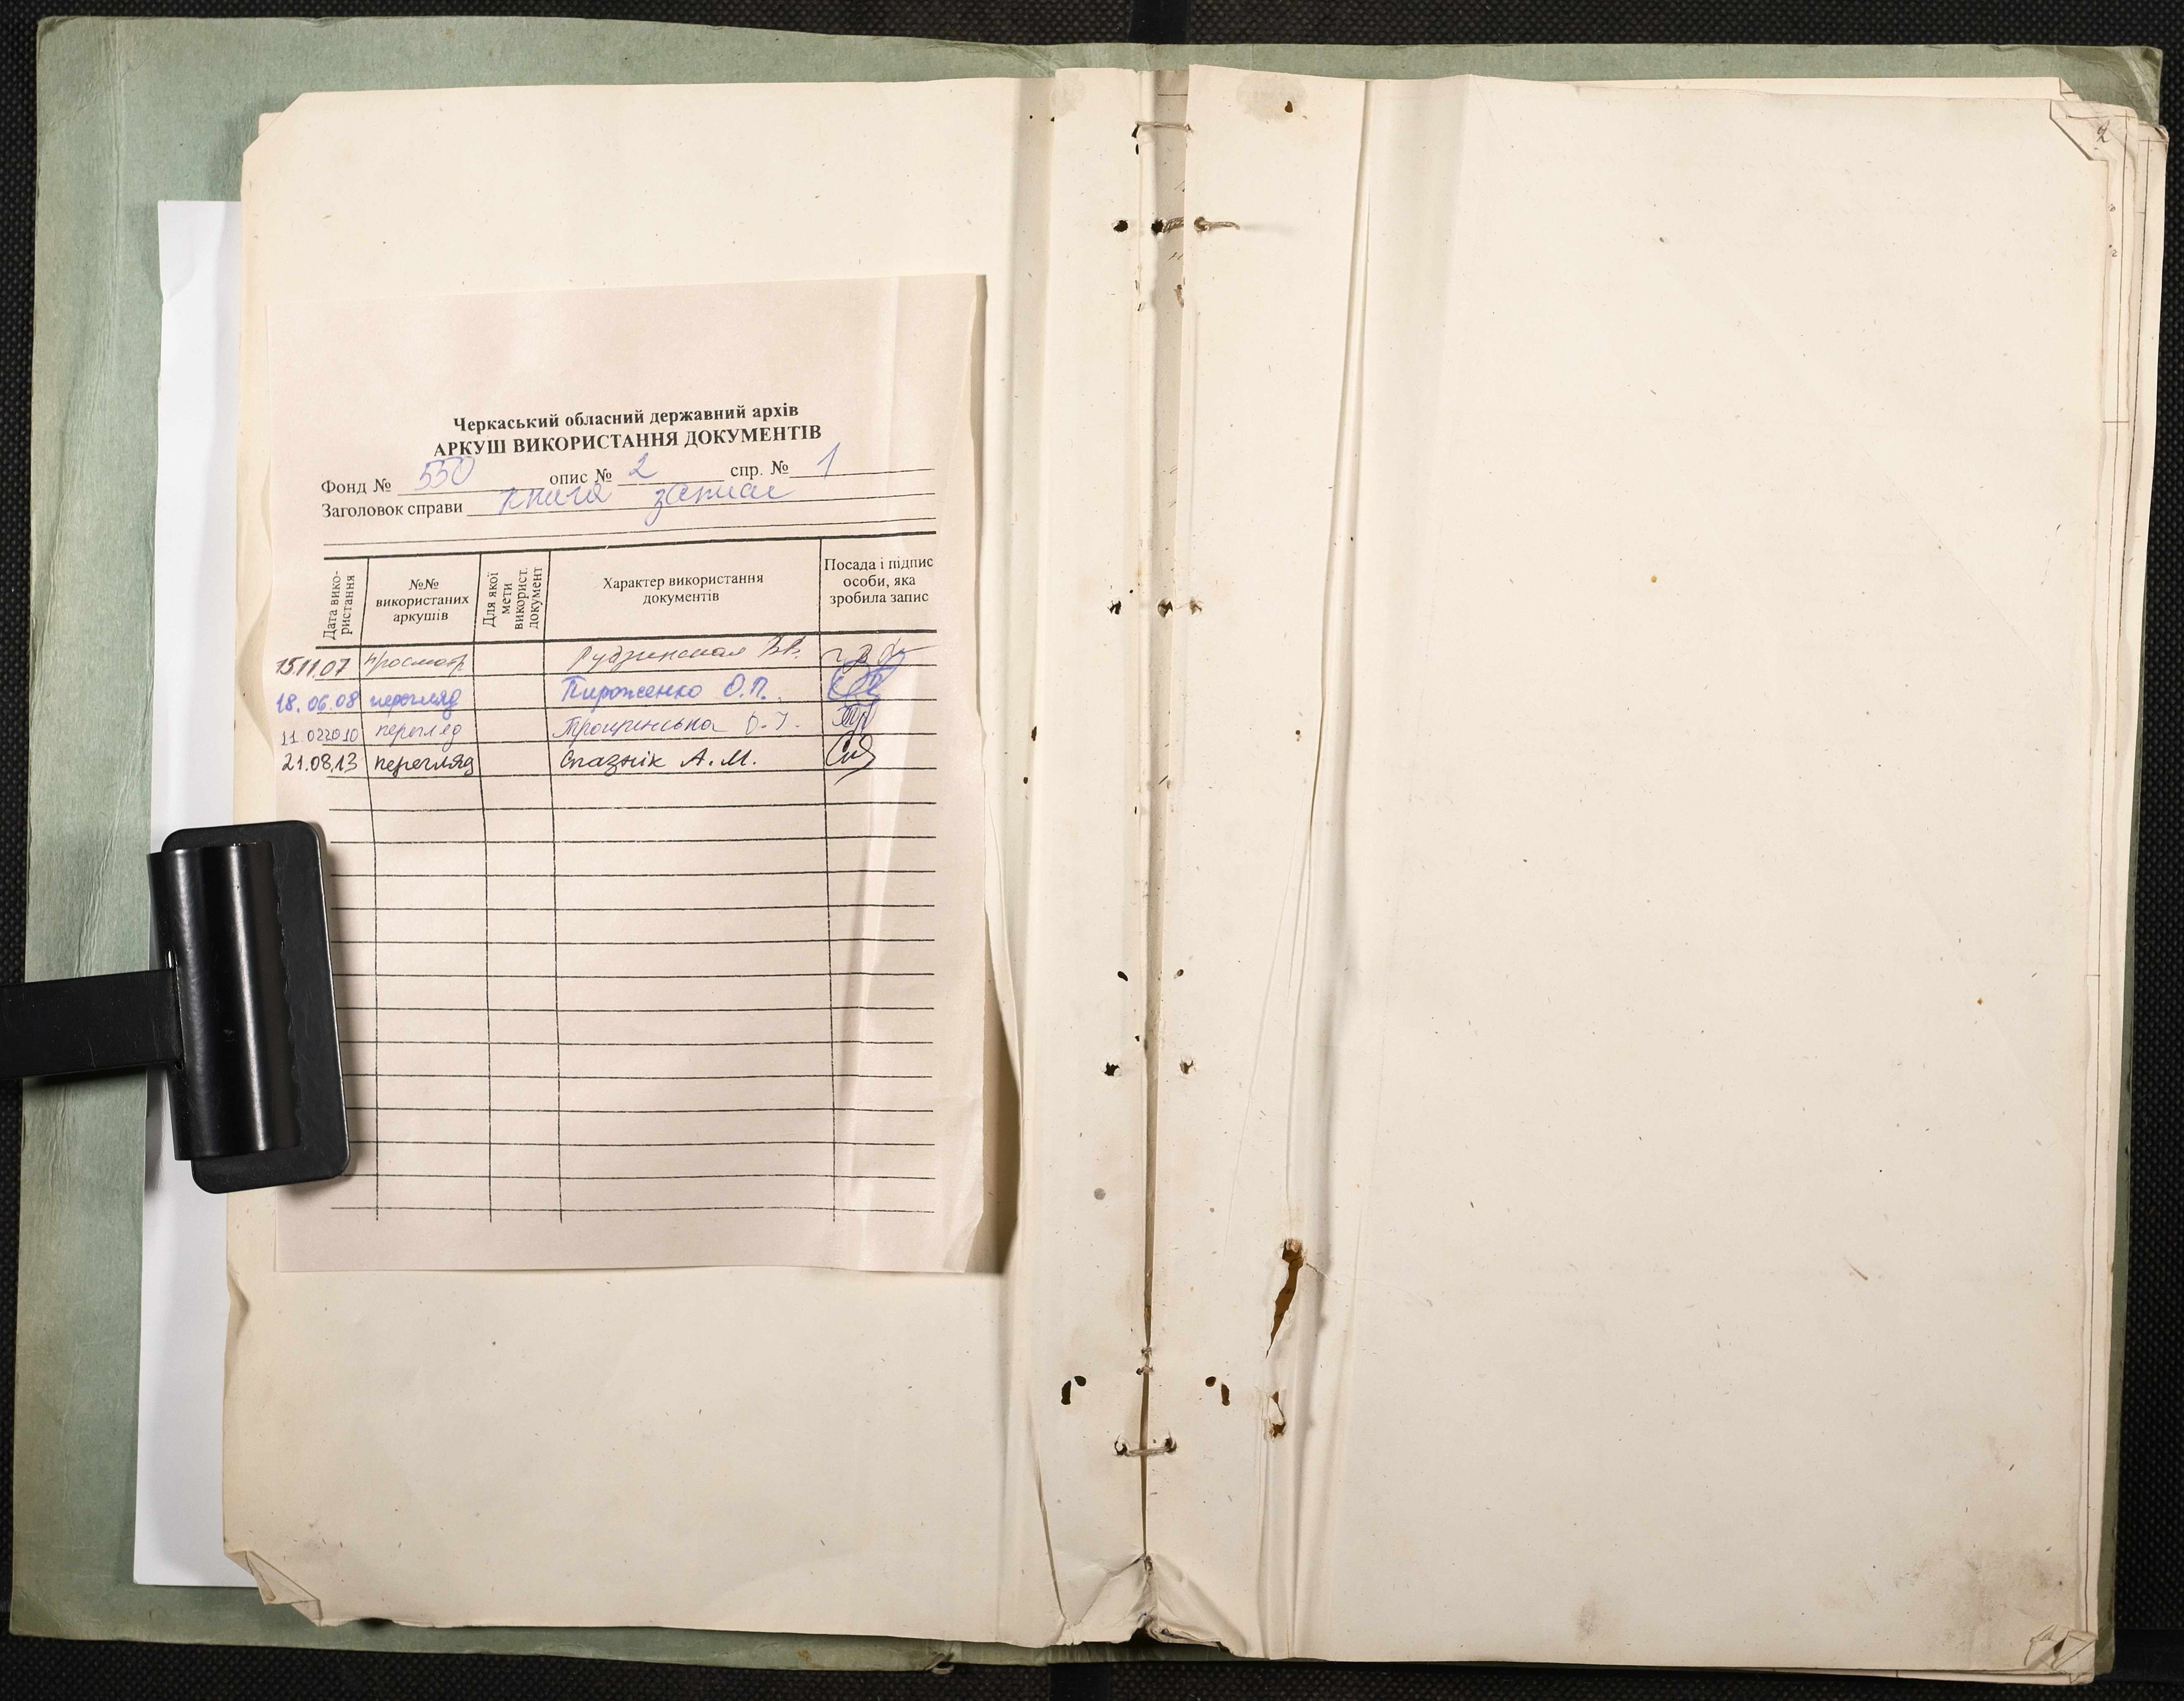 2
Черкаський обласний державний архів
АРКУШ ВИКОРИСТАННЯ ДОКУМЕНТІВ
Фонд № 550 опис № 2 спр. № 1
Заголовок справи книга записи
Дата вико-
ристання
№№
використаних
аркушів
Для якої
мети
використ.
документ
Характер використання
документів
Посада і підпис
особи, яка
зробила запис
15.11.07 просмотр Рудзинская В.В.
18.06.08 перегляд Пироженко О.П.
11.022010 перегляд Трощинська О.І.
21.08.13 перегляд Спазнік А.М.